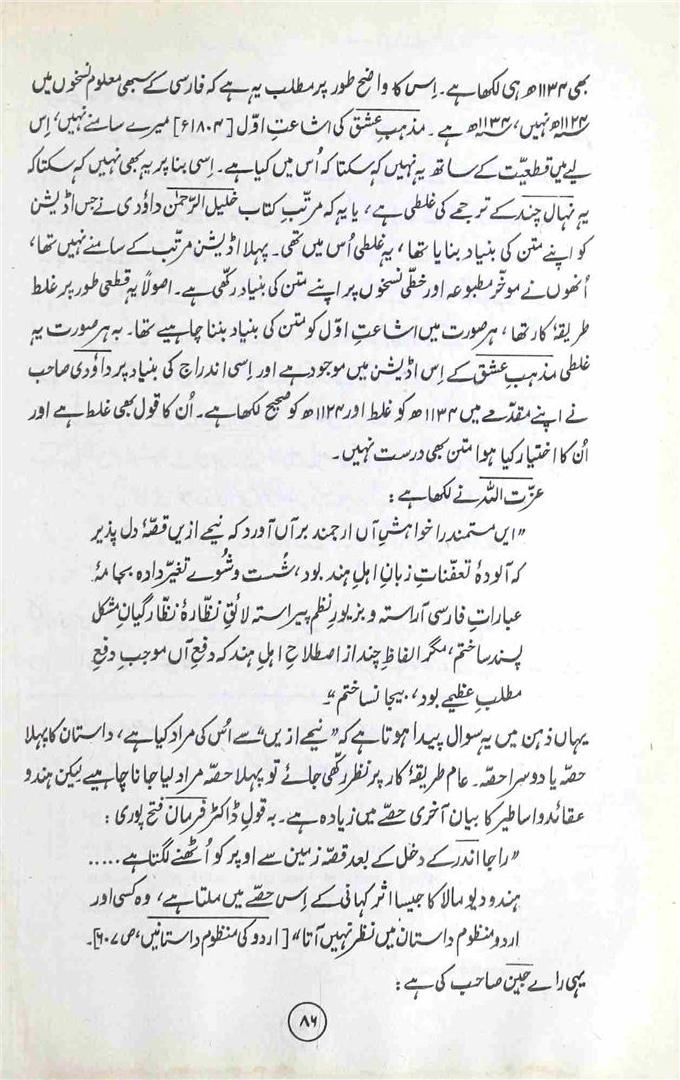 بھی ۱۱۳۴ھ ہی لکھا ہے۔ اِس کا واضح طور پر مطلب یہ ہے کہ فارسی کے سبھی معلوم نسخوں میں
۱۱۲۴ھ نہیں، ۱۱۳۴ھ ہے۔ مذہبِ عشق کی اشاعتِ اوّل [۱۸۰۴ء] میرے سامنے نہیں، اِس
لیے میں قطعیّت کے ساتھ یہ نہیں کہہ سکتا کہ اُس میں کیا ہے۔ اِسی بنا پر یہ بھی نہیں کہہ سکتا کہ
یہ نہال چند کے ترجمے کی غلطی ہے، یا یہ کہ مرتّبِ کتاب خلیل الرّحمٰن داؤدی نے جس اڈیشن
کو اپنے متن کی بنیاد بنایا تھا، یہ غلطی اُس میں تھی۔ پہلا اڈیشن مرتّب کے سامنے نہیں تھا،
اُنھوں نے موخّر مطبوعہ اور خطّی نسخوں پر اپنے متن کی بنیاد رکھّی ہے۔ اصولاً یہ قطعی طور پر غلط
طریقۂ کار تھا، ہر صورت میں اشاعتِ اوّل کو متن کی بنیاد بننا چاہیے تھا۔ بہ ہر صورت یہ
غلطی مذہبِ عشق کے اِس اڈیشن میں موجود ہے اور اِسی اندراج کی بنیاد پر داؤدی صاحب
نے اپنے مقدّمے میں ۱۱۳۴ھ کو غلط اور ۱۱۲۴ھ کو صحیح لکھا ہے۔ اُن کا قول بھی غلط ہے اور
اُن کا اختیار کیا ہوا متن بھی درست نہیں۔
عزّت اللہ نے لکھا ہے:
"ایں مستمند را خواہشِ آں ارجمند بر آں آورد کہ نیمے ازیں قصّۂ دل پذیر
کہ آلودۂ تعفّناتِ زبانِ اہلِ ہند بود، شُست و شُوے تغیّر دادہ بجامۂ
عباراتِ فارسی آراستہ و بزیورِ نظم پیراستہ لائقِ نظّارۂ نظّارگیانِ مشکل
پسند ساختم، مگر الفاظِ چند از اصطلاحِ اہلِ ہند کہ دفعِ آں موجبِ دفعِ
مطلبِ عظیمے بود، بیجا نساختم"۔
یہاں ذہن میں یہ سوال پیدا ہوتا ہے کہ "نیمے ازیں" سے اُس کی مراد کیا ہے، داستان کا پہلا
حصّہ یا دوسرا حصّہ۔ عام طریقۂ کار پر نظر رکھّی جائے تو پہلا حصّہ مراد لیا جانا چاہیے لیکن ہندو
عقائد و اساطیر کا بیان آخری حصّے میں زیادہ ہے۔ بہ قولِ ڈاکٹر فرمان فتح پوری:
"راجا اندر کے دخل کے بعد قصّہ زمین سے اوپر کو اُٹھنے لگتا ہے.....
ہندو دیو مالا کا جیسا اثر کہانی کے اِس حصّے میں ملتا ہے، وہ کسی اور
اردو منظوم داستان میں نظر نہیں آتا" [اردو کی منظوم داستانیں، ص ۶۰۷]۔
یہی راے جین صاحب کی ہے:
۸۶